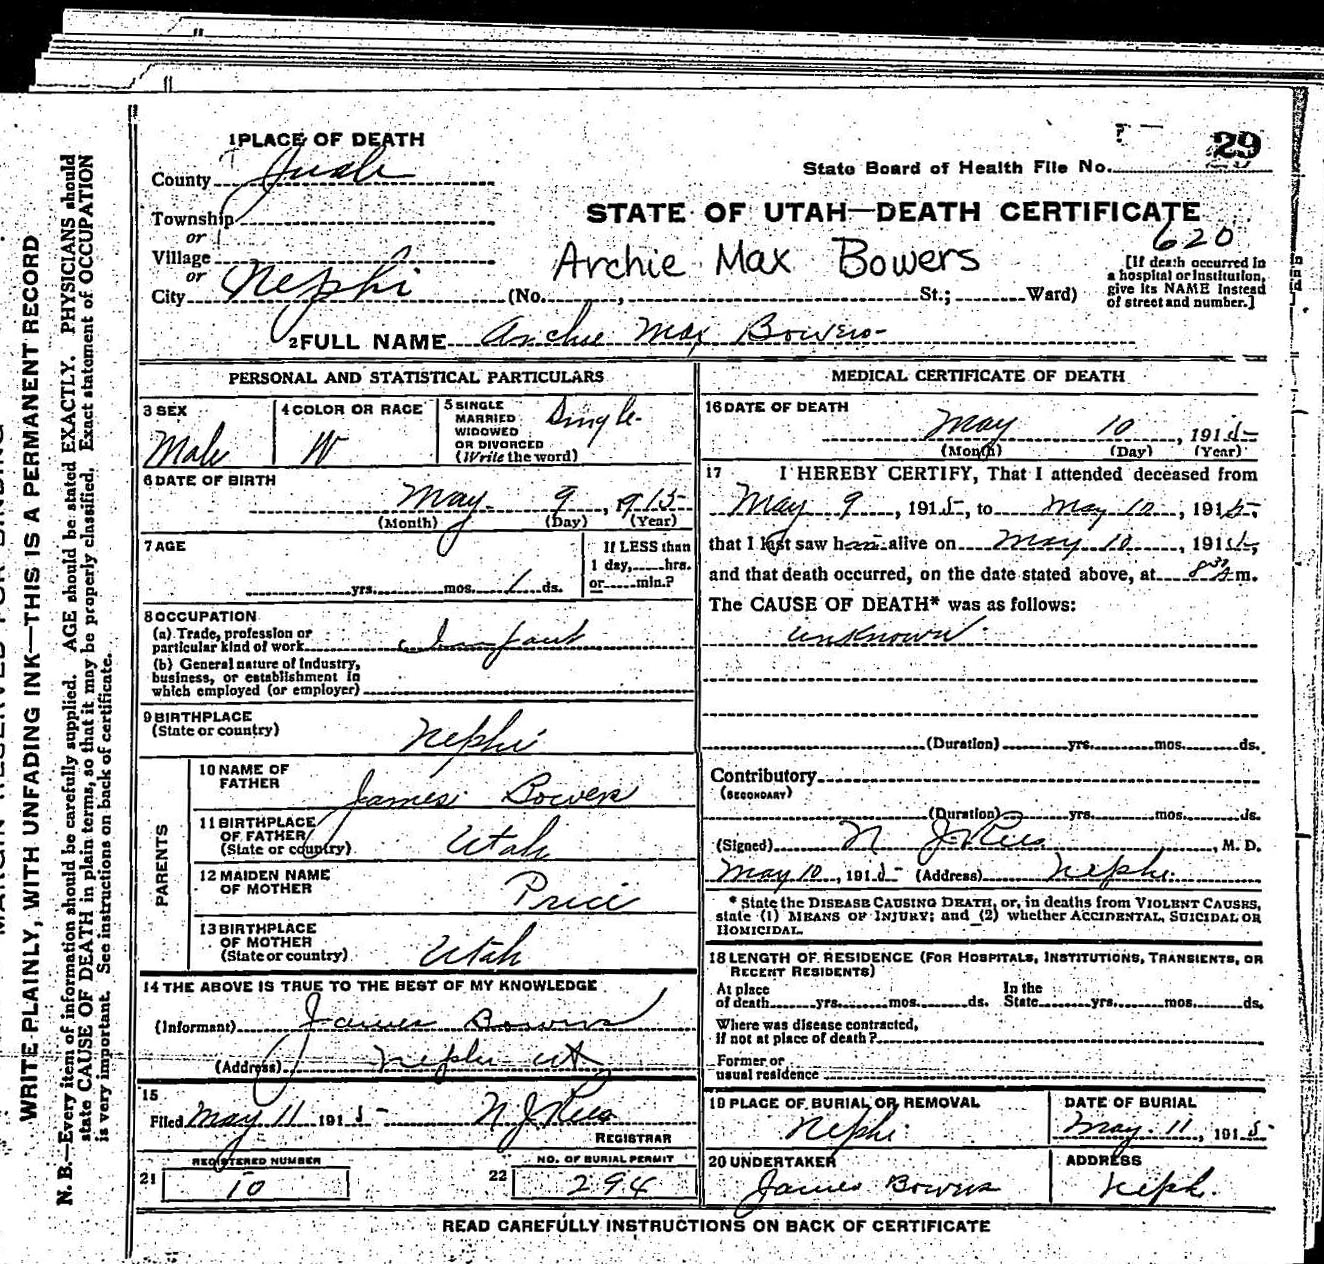 29
State Board of Health File No.
1 PLACE OF DEATH
County Juab
STATE OF UTAH—DEATH CERTIFICATE
620
Township
or
Village
or
City Nephi
Archie Max Bowers
(No. , St.; Ward)
[If death occurred in
a hospital or institution,
give its NAME instead
of street and number.]
2 FULL NAME Archie Max Bowers
PERSONAL AND STATISTICAL PARTICULARS
3 SEX
Male
4 COLOR OR RACE
W
5 SINGLE
MARRIED
WIDOWED
OR DIVORCED
(Write the word)
Single
6 DATE OF BIRTH
May 9, 1915
(Month) (Day) (Year)
7 AGE
yrs. mos. 1 ds.
If LESS than
1 day, hrs.
or min.?
8 OCCUPATION
(a) Trade, profession or
particular kind of work Infant
(b) General nature of Industry,
business, or establishment in
which employed (or employer)
9 BIRTHPLACE
(State or country)
Nephi
PARENTS
10 NAME OF
FATHER
James Bowers
11 BIRTHPLACE
OF FATHER
(State or country)
Utah
12 MAIDEN NAME
OF MOTHER
Price
13 BIRTHPLACE
OF MOTHER
(State or country)
Utah
14 THE ABOVE IS TRUE TO THE BEST OF MY KNOWLEDGE
(Informant) James Bowers
(Address) Nephi Ut
15
Filed May 11 1915 N J Rees
REGISTRAR
21 REGISTERED NUMBER
10
22 NO. OF BURIAL PERMIT
294
MEDICAL CERTIFICATE OF DEATH
16 DATE OF DEATH
May 10, 1915
(Month) (Day) (Year)
17 I HEREBY CERTIFY, That I attended deceased from
May 9, 1915, to May 10, 1915,
that I last saw him alive on May 10, 1915,
and that death occurred, on the date stated above, at 8 30 A m.
The CAUSE OF DEATH* was as follows:
unknown
(Duration) yrs. mos. ds.
Contributory
(SECONDARY)
(Duration) yrs. mos. ds.
(Signed) N J Rees, M. D.
May 10, 1915 (Address) Nephi
* State the DISEASE CAUSING DEATH, or, in deaths from VIOLENT CAUSES,
state (1) MEANS OF INJURY; and (2) whether ACCIDENTAL, SUICIDAL OR
HOMICIDAL.
18 LENGTH OF RESIDENCE (FOR HOSPITALS, INSTITUTIONS, TRANSIENTS, OR
RECENT RESIDENTS)
At place
of death yrs. mos. ds.
In the
State yrs. mos. ds.
Where was disease contracted,
if not at place of death?
Former or
usual residence
19 PLACE OF BURIAL OR REMOVAL
Nephi
DATE OF BURIAL
May 11, 1915
20 UNDERTAKER
James Bowers
ADDRESS
Neph.
READ CAREFULLY INSTRUCTIONS ON BACK OF CERTIFICATE
WRITE PLAINLY, WITH UNFADING INK—THIS IS A PERMANENT RECORD
N. B.—Every item of information should be carefully supplied. AGE should be stated EXACTLY. PHYSICIANS should
state CAUSE OF DEATH in plain terms, so that it may be properly classified. Exact statement of OCCUPATION
is very important. See instructions on back of certificate.